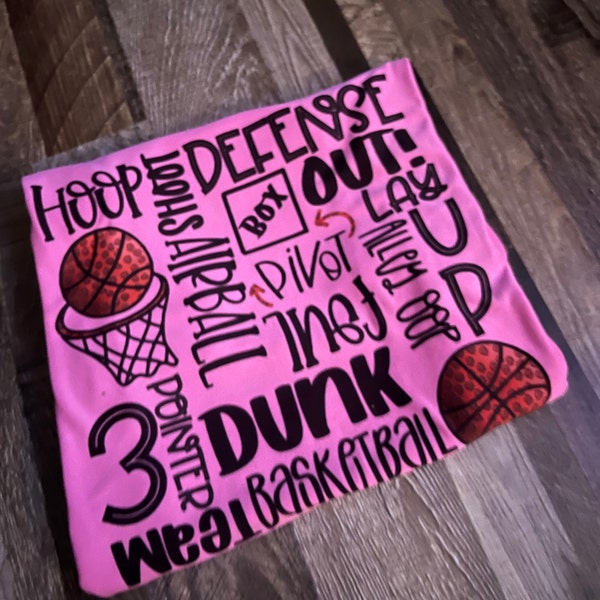 HOOP
SHOOT
DEFENSE
BOX
OUT!
LAY
UP
AIRBALL
PIVOT
ALLEY OOP
FOUL
3
POINTER
DUNK
TEAM
BASKETBALL